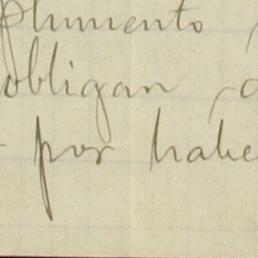 plimento
obligan
por habe